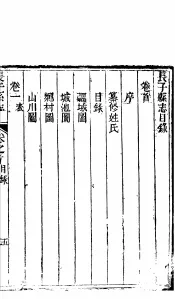 長子縣志目錄
卷首
序
纂修姓氏
目錄
疆域圖
城池圖
鄉村圖
山川圖
卷一表
目錄
五